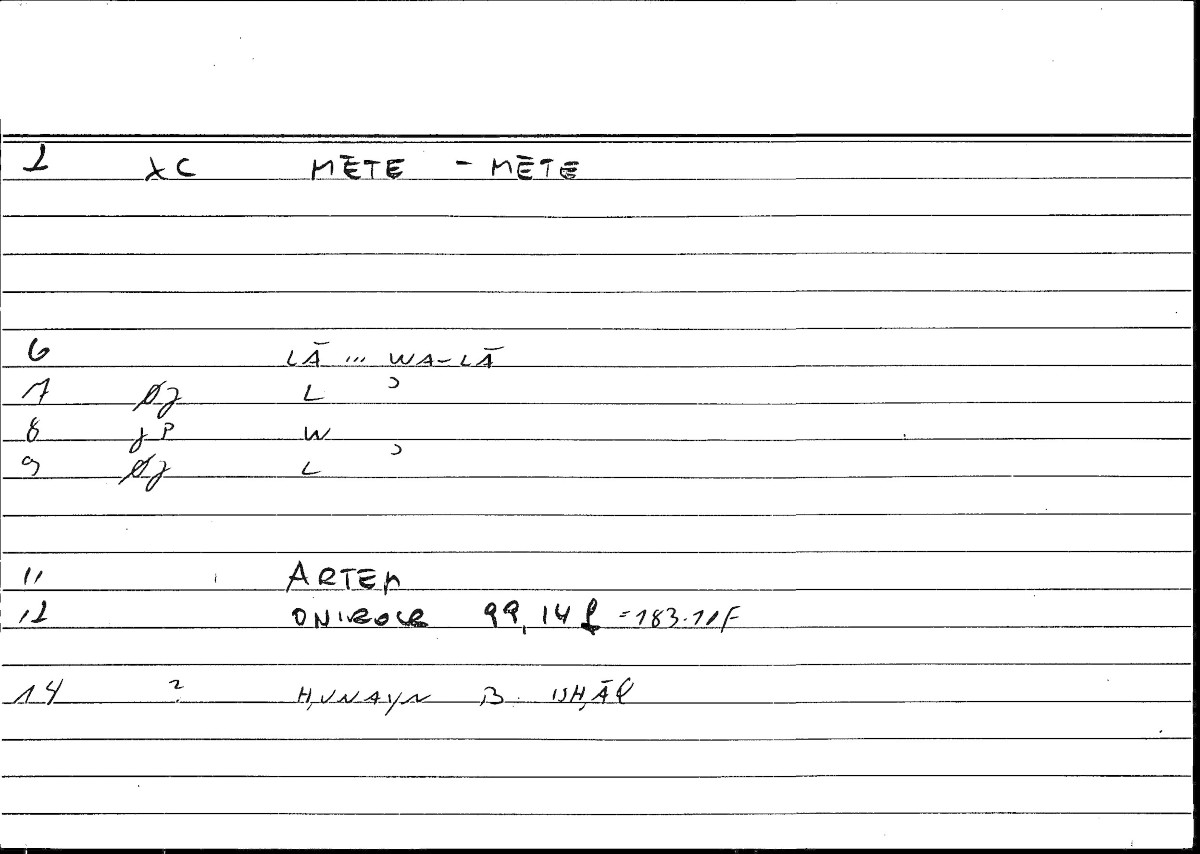 1 XC MĒTE - MĒTE
6 LĀ ... WA-LĀ
7 Øj L ʾ
8 jP W
9 Øj L ʾ
11 ARTEM
12 ONIROCR 99,14 f =183.11F
14 ? ḤUNAYN B. ISḤĀQ